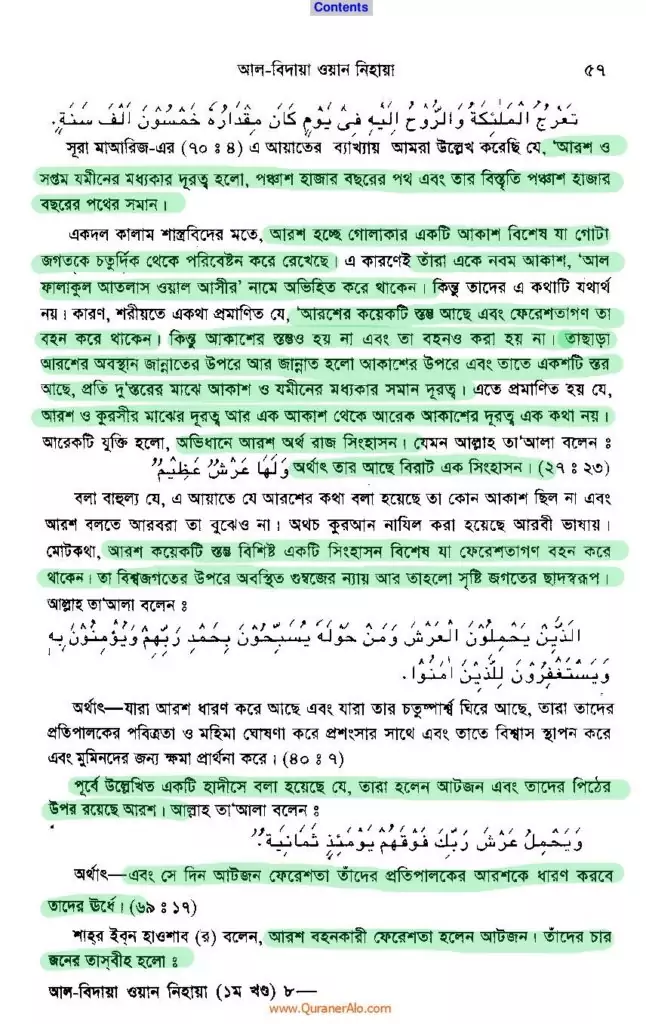 Contents
আল-বিদায়া ওয়ান নিহায়া ৫৭
تَعْرُجُ الْمَلٰئِكَةُ وَالرُّوْحُ اِلَيْهِ فِىْ يَوْمٍ كَانَ مِقْدَارُهٗ خَمْسُوْنَ اَلْفَ سَنَةٍ.
সূরা মাআরিজ-এর (৭০ ঃ ৪) এ আয়াতের ব্যাখ্যায় আমরা উল্লেখ করেছি যে, 'আরশ ও
সপ্তম যমীনের মধ্যকার দূরত্ব হলো, পঞ্চাশ হাজার বছরের পথ এবং তার বিস্তৃতি পঞ্চাশ হাজার
বছরের পথের সমান।
একদল কালাম শাস্ত্রবিদের মতে, আরশ হচ্ছে গোলাকার একটি আকাশ বিশেষ যা গোটা
জগতকে চতুর্দিক থেকে পরিবেষ্টন করে রেখেছে। এ কারণেই তাঁরা একে নবম আকাশ, 'আল
ফালাকুল আতলাস ওয়াল আসীর' নামে অভিহিত করে থাকেন। কিন্তু তাদের এ কথাটি যথার্থ
নয়। কারণ, শরীয়তে একথা প্রমাণিত যে, 'আরশের কয়েকটি স্তম্ভ আছে এবং ফেরেশতাগণ তা
বহন করে থাকেন। কিন্তু আকাশের স্তম্ভও হয় না এবং তা বহনও করা হয় না। তাছাড়া
আরশের অবস্থান জান্নাতের উপরে আর জান্নাত হলো আকাশের উপরে এবং তাতে একশটি স্তর
আছে, প্রতি দু'স্তরের মাঝে আকাশ ও যমীনের মধ্যকার সমান দূরত্ব। এতে প্রমাণিত হয় যে,
আরশ ও কুরসীর মাঝের দূরত্ব আর এক আকাশ থেকে আরেক আকাশের দূরত্ব এক কথা নয়।
আরেকটি যুক্তি হলো, অভিধানে আরশ অর্থ রাজ সিংহাসন। যেমন আল্লাহ তা'আলা বলেন ঃ
وَلَهَا عَرْشٌ عَظِيْمٌ অর্থাৎ তার আছে বিরাট এক সিংহাসন। (২৭ ঃ ২৩)
বলা বাহুল্য যে, এ আয়াতে যে আরশের কথা বলা হয়েছে তা কোন আকাশ ছিল না এবং
আরশ বলতে আরবরা তা বুঝেও না। অথচ কুরআন নাযিল করা হয়েছে আরবী ভাষায়।
মোটকথা, আরশ কয়েকটি স্তম্ভ বিশিষ্ট একটি সিংহাসন বিশেষ যা ফেরেশতাগণ বহন করে
থাকেন। তা বিশ্বজগতের উপরে অবস্থিত গুম্বজের ন্যায় আর তাহলো সৃষ্টি জগতের ছাদস্বরূপ।
আল্লাহ তা'আলা বলেন ঃ
اَلَّذِيْنَ يَحْمِلُوْنَ الْعَرْشَ وَمَنْ حَوْلَهٗ يُسَبِّحُوْنَ بِحَمْدِ رَبِّهِمْ وَيُؤْمِنُوْنَ بِهٖ
وَيَسْتَغْفِرُوْنَ لِلَّذِيْنَ اٰمَنُوْا.
অর্থাৎ—যারা আরশ ধারণ করে আছে এবং যারা তার চতুষ্পার্শ্ব ঘিরে আছে, তারা তাদের
প্রতিপালকের পবিত্রতা ও মহিমা ঘোষণা করে প্রশংসার সাথে এবং তাতে বিশ্বাস স্থাপন করে
এবং মুমিনদের জন্য ক্ষমা প্রার্থনা করে। (৪০ ঃ ৭)
পূর্বে উল্লেখিত একটি হাদীসে বলা হয়েছে যে, তারা হলেন আটজন এবং তাদের পিঠের
উপর রয়েছে আরশ। আল্লাহ তা'আলা বলেন ঃ
وَيَحْمِلُ عَرْشَ رَبِّكَ فَوْقَهُمْ يَوْمَئِذٍ ثَمَانِيَةٌ.
অর্থাৎ—এবং সে দিন আটজন ফেরেশতা তাঁদের প্রতিপালকের আরশকে ধারণ করবে
তাদের ঊর্ধে। (৬৯ ঃ ১৭)
শাহ্‌র ইব্‌ন হাওশাব (র) বলেন, আরশ বহনকারী ফেরেশতা হলেন আটজন। তাঁদের চার
জনের তাস্‌বীহ হলো ঃ
আল-বিদায়া ওয়ান নিহায়া (১ম খণ্ড) ৮—
www.QuranerAlo.com